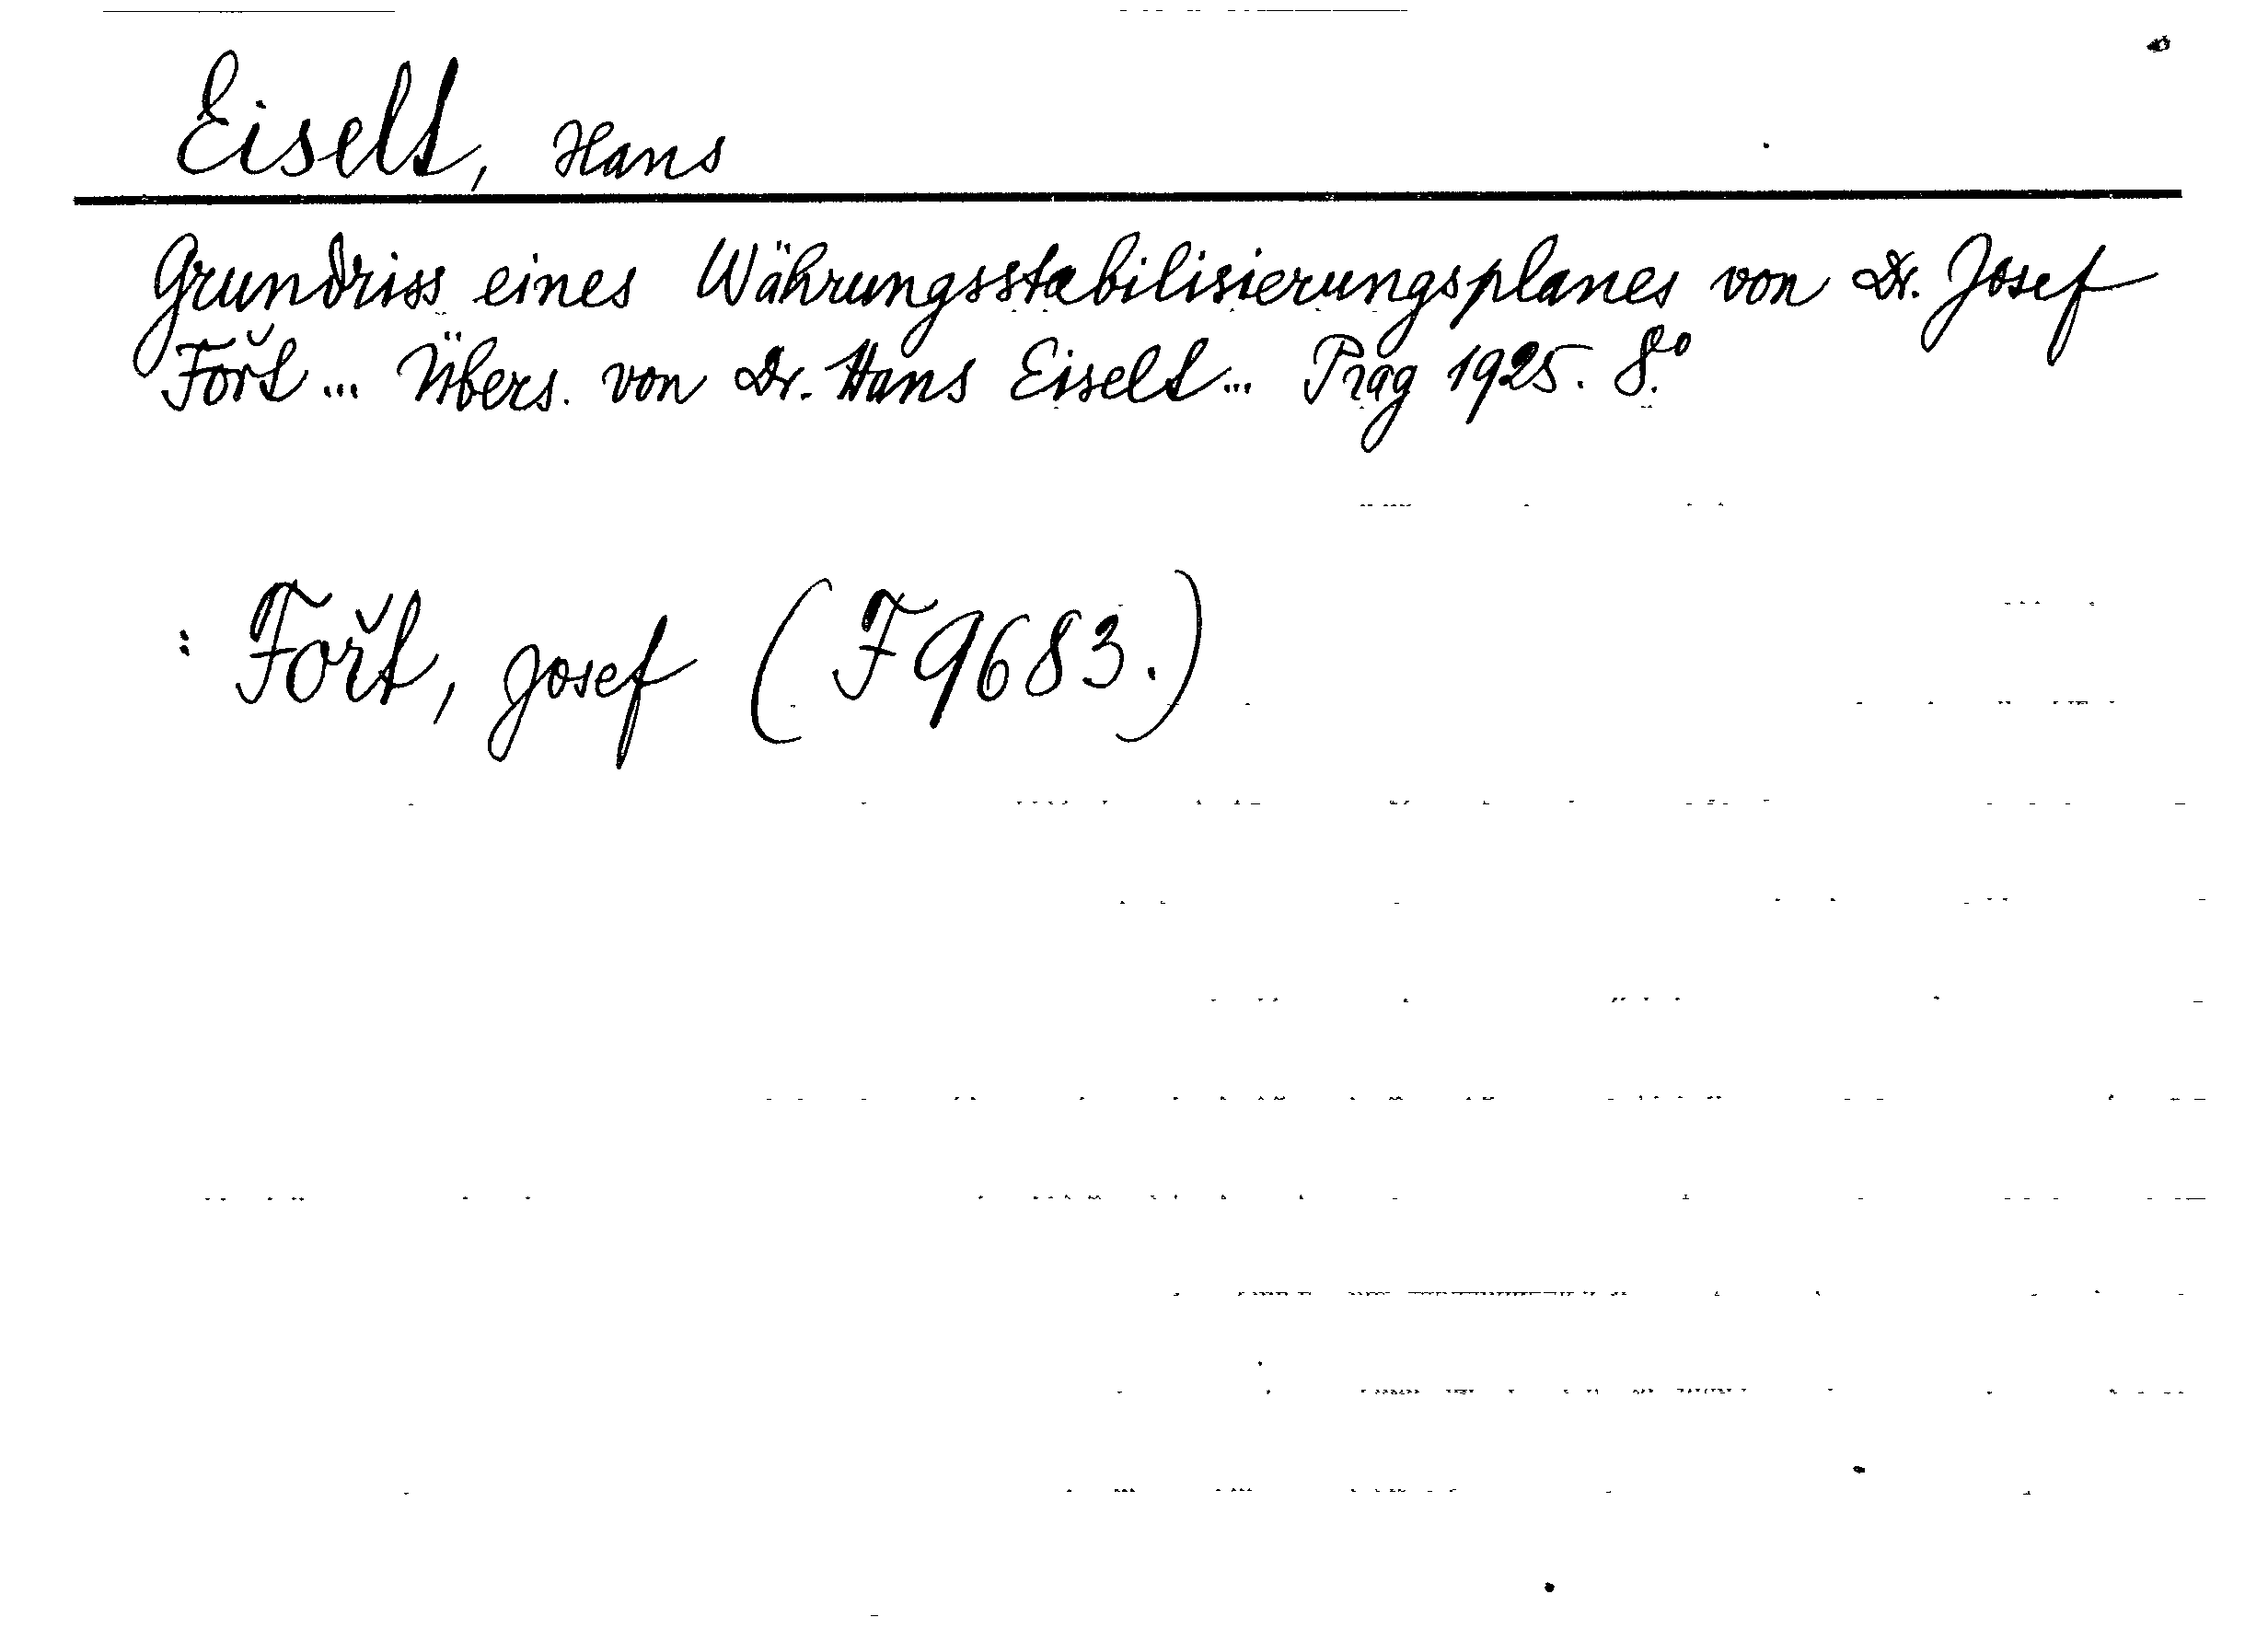 Eiselt, Hans
Grundriss eines Währungsstabilisierungsplanes von Dr. Josef
Fořt ... Übers. von Dr. Hans Eiselt ... Prag 1925. 8.°
: Fořt, Josef (F 9683.)